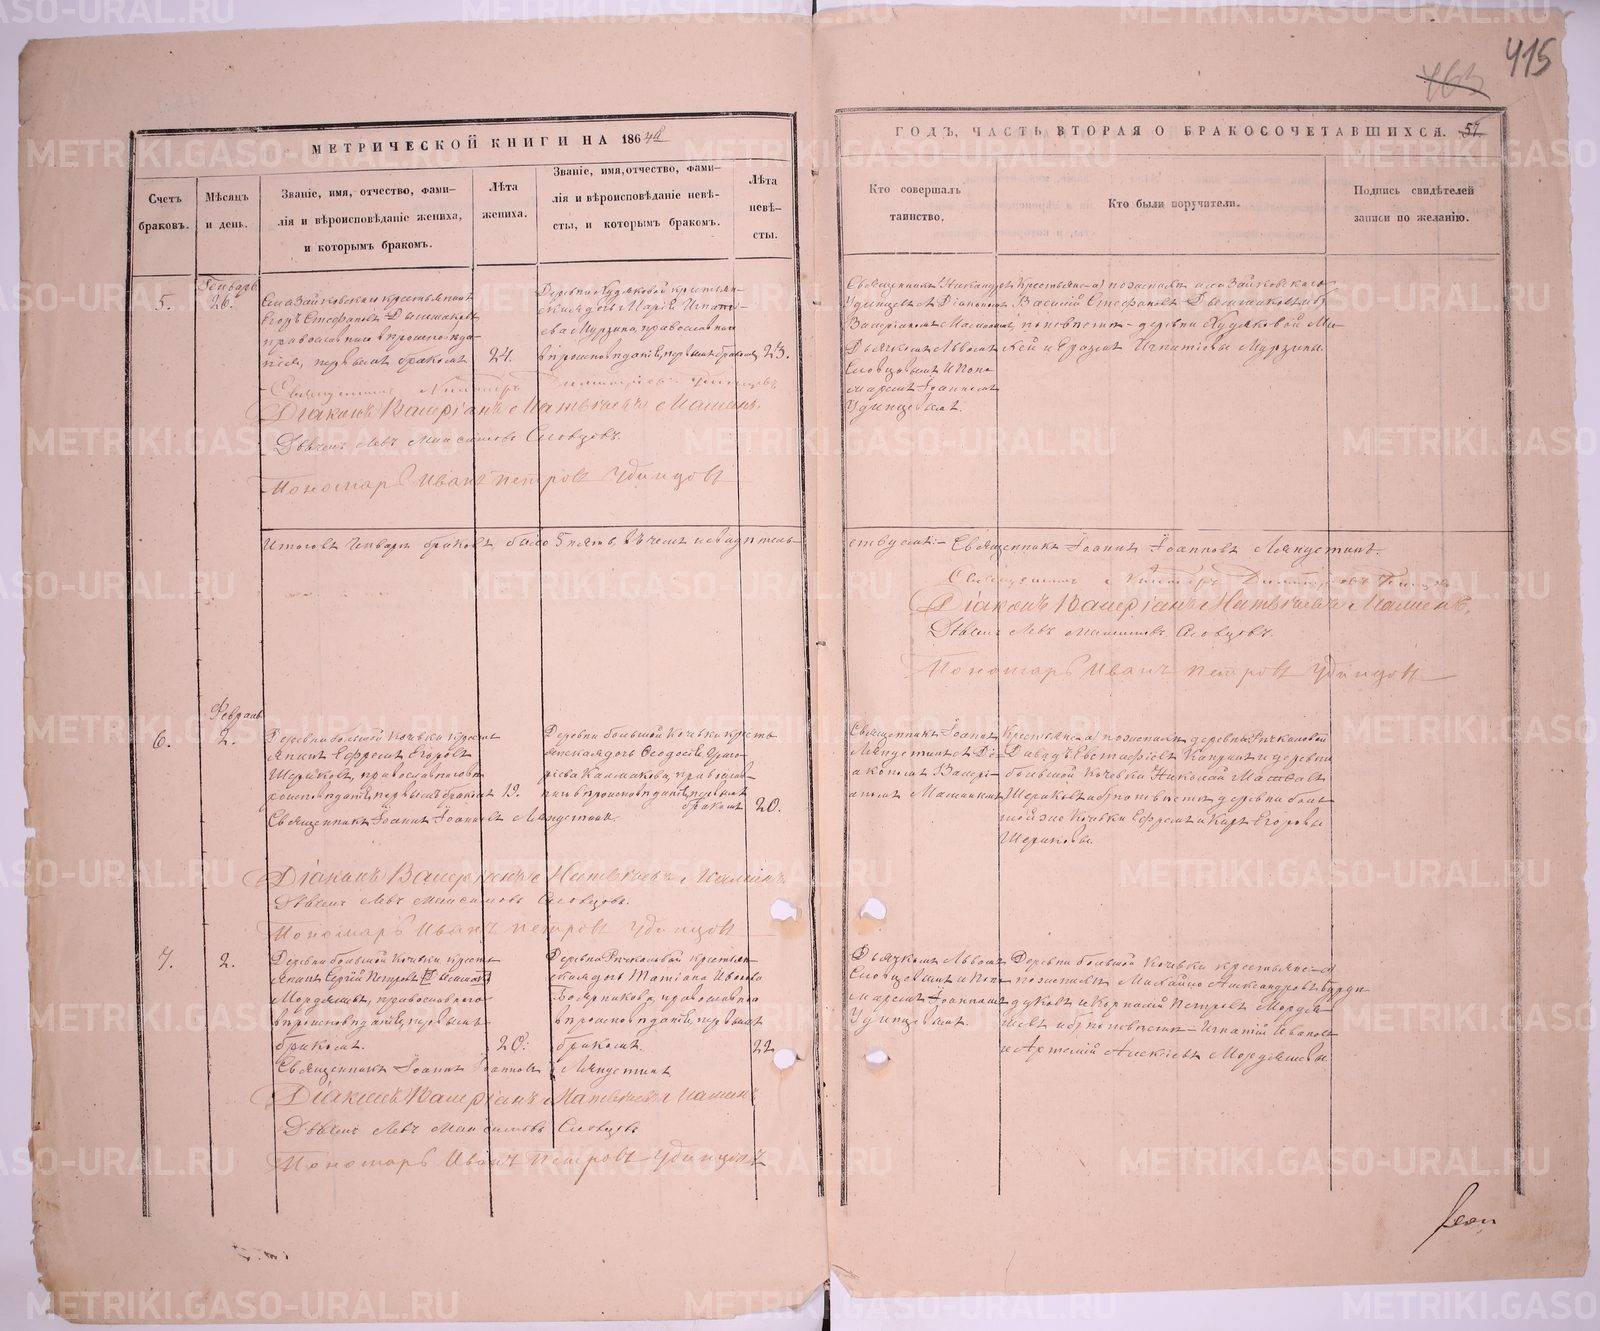 415
463
МЕТРИЧЕСКОЙ КНИГИ НА 1864й
ГОДЪ, ЧАСТЬ ВТОРАЯ О БРАКОСОЧЕТАВШИХСЯ. 57.
Счетъ браковъ.
Мѣсяцъ и день.
Званіе, имя, отчество, фами-
лія и вѣроисповѣданіе жениха,
и которымъ бракомъ.
Лѣта
жениха.
Званіе, имя, отчество, фами-
лія и вѣроисповѣданіе невѣ-
сты, и которымъ бракомъ.
Лѣта
невѣ-
сты.
Кто совершалъ
таинство.
Кто были поручители.
Подпись свидѣтелей
записи по желанію.
Генварь
5.
26.
Села Зайковскаго крестьянинъ
Егоръ Стефановъ
православнаго вѣроисповѣда-
нія, первымъ бракомъ
24.
Деревни Худяковой крестьян-
ская дочь Марія Игнаті-
ева Мурзина, православнаго
вѣроисповѣданія, первымъ бракомъ
23.
Священникъ Никандръ
Удинцевъ съ Діакономъ
Валеріаномъ Машинымъ
Дьячкомъ Львомъ
Словцовымъ и Поно-
маремъ Іоанномъ
Удинцовымъ.
Крестьяне а) по женихѣ села Зайковскаго
Василій Стефановъ
по невѣстѣ - деревни Худяковой
Игнатіевы Мурзины.
Священникъ Никандръ Димитріевъ Удинцевъ
Діаконъ Валеріанъ Матвѣевъ Машинъ,
Дьячекъ Левъ Максимовъ Словцовъ.
Пономарь Иванъ Петровъ Удинцовъ
Итого въ Генварѣ браковъ было 5 пять, въ чемъ и свидѣтель-
ствуемъ:- Священникъ Іоаннъ Іоанновъ Ляпустинъ.
Священникъ Никандръ Димитріевъ
Діаконъ Валеріанъ Матвѣевъ Машинъ,
Дьячекъ Левъ Максимовъ Словцовъ.
Пономарь Иванъ Петровъ Удинцовъ
Февраль
6.
2.
Деревни большой Кочевки кресть-
янинъ Ефремъ Егоровъ
Шориковъ, православнаго вѣ-
роисповѣданія, первымъ бракомъ
19.
Деревни большой Кочевки кресть-
янская дочь Ѳеодосія Григо-
ріева Калмакова, православ-
наго вѣроисповѣданія, первымъ
бракомъ
20.
Священникъ Іоаннъ
Ляпустинъ съ Ді-
акономъ Валері-
аномъ Машинымъ
Крестьяне а) по женихѣ деревни Речкаловой
Давидъ Евстафіевъ и деревни
большой Кочевки Николай Матвѣевъ
Шориковъ по невѣстѣ деревни боль-
шой же Кочевки Ефремъ и Карпъ Егоровы
Шориковы.
Священникъ Іоаннъ Іоанновъ Ляпустинъ.
Діаконъ Валеріанъ Матвѣевъ Машинъ
Дьячекъ Левъ Максимовъ Словцовъ.
Пономарь Иванъ Петровъ Удинцовъ
7.
2.
Деревни большой Кочевки кресть-
янинъ Сергѣй Петровъ
Мордяшовъ, православнаго
вѣроисповѣданія, первымъ
бракомъ.
20.
Деревни Речкаловой крестьян-
ская дочь Татіана Иванова
Боярникова, православнаго
вѣроисповѣданія, первымъ
бракомъ.
22
Дьячкомъ Львомъ
Словцовымъ и Поно-
маремъ Іоанномъ
Удинцовымъ.
Деревни большой Кочевки крестьяне - а)
по женихѣ Михайло Александровъ Бурди-
уковъ и Корнилій Петровъ Мордя-
шовъ по невѣстѣ - Игнатій Ивановъ
и Артемій Алексіевъ Мордяшовы.
Священникъ Іоаннъ Іоанновъ Ляпустинъ
Діаконъ Валеріанъ Матвѣевъ Машинъ
Дьячекъ Левъ Максимовъ Словцовъ
Пономарь Иванъ Петровъ Удинцовъ
METRIKI.GASO-URAL.RU